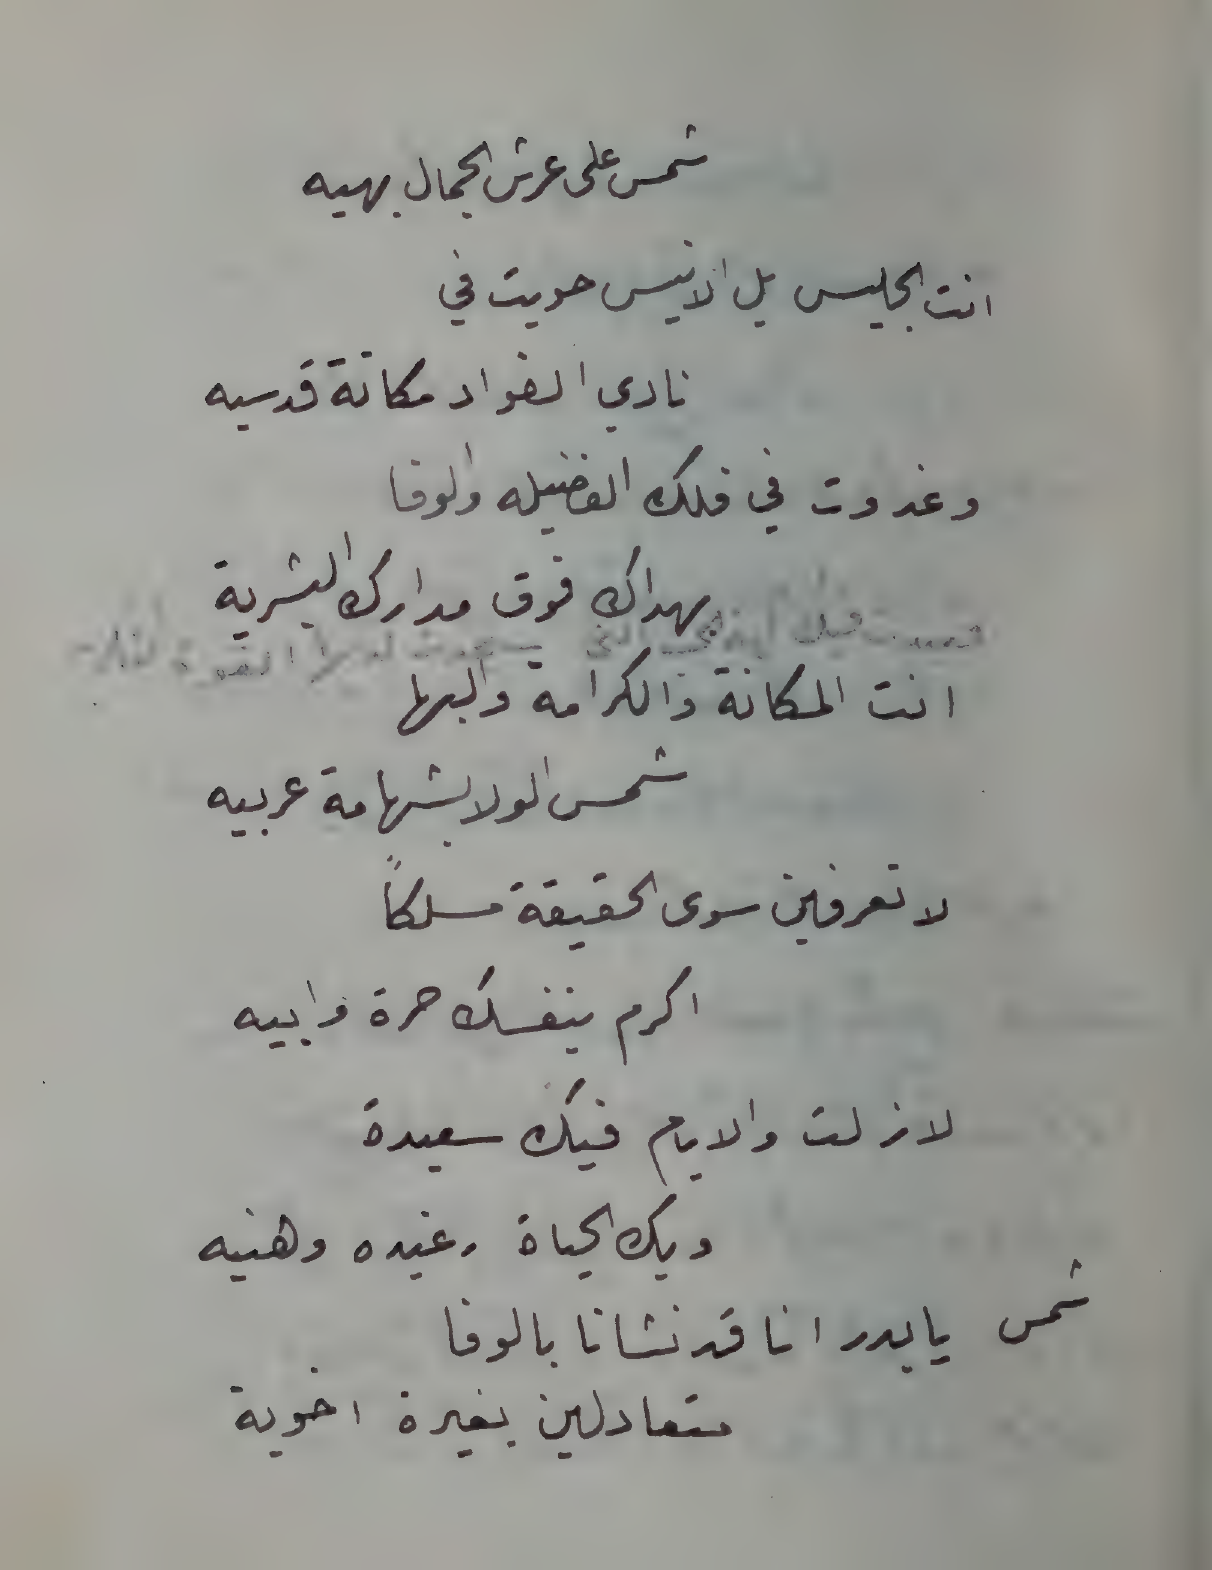 شمس على عرش الجمال بهيه
انت الجليس بل الانيس حويت في
نادي الفواد مكانة قدسيه
وغدوت في فلك الفضيله والوفا
بهداك فوق مدارك البشرية
انت المكانة والكرامة والبها
شمس الولا بشهامة عربيه
لا تعرفين سوى الحقيقة مسلكاً
اكرم بنفسك حرة وابيه
لازلت والايام فيك سعيدة
وبك الحياة رغيده وهنيه
شمس يابدر انا قد نشانا بالوفا
متعادلين بغيرة اخوية